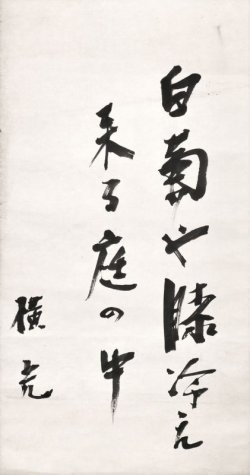 白菊や膝冷え
来る庭の中
横光